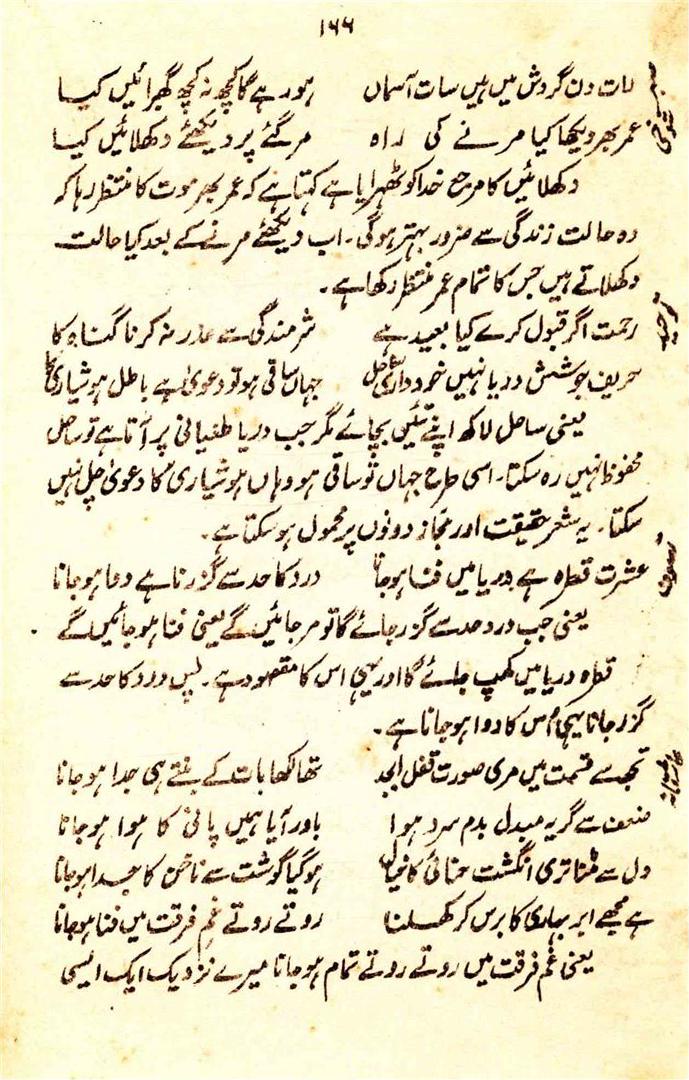 ۱۶۶
رات دن گردش میں ہیں سات آسماں ہو رہے گا کچھ نہ کچھ گھبرائیں کیا
عمر بھر دیکھا کیا مرنے کی راہ مر گئے پر دیکھئے دکھلائیں کیا
شوخی
دکھلائیں کا مرجع خدا کو ٹھہرایا ہے کہتا ہے کہ عمر بھر موت کا منتظر رہا کہ
وہ حالت زندگی سے ضرور بہتر ہوگی۔ اب دیکھئے مرنے کے بعد کیا حالت
دکھلاتے ہیں جس کا تمام عمر منتظر رکھا ہے۔
رحمت اگر قبول کرے کیا بعید ہے شرمندگی سے عذر نہ کرنا گناہ کا
حریف جوشش دریا نہیں خودداری ساحل جہاں ساقی ہو تو دعویٰ ہے باطل ہوشیاری کا
یعنی ساحل لاکھ اپنے تئیں بچائے مگر جب دریا طغیانی پر آتا ہے تو ساحل
محفوظ نہیں رہ سکتا۔ اسی طرح جہاں تو ساقی ہو وہاں ہوشیاری کا دعویٰ چل نہیں
سکتا۔ یہ شعر حقیقت اور مجاز دونوں پر محمول ہو سکتا ہے۔
تصوف
عشرت قطرہ ہے دریا میں فنا ہو جانا درد کا حد سے گزرنا ہے دوا ہو جانا
یعنی جب درد حد سے گزر جائے گا تو مر جائیں گے یعنی فنا ہو جائیں گے
قطرہ دریا میں کھپ جائے گا اور یہی اس کا مقصود ہے۔ پس درد کا حد سے
گزر جانا یہی اس کا دوا ہو جانا ہے۔
تجھ سے قسمت میں مری صورت قفل ابجد تھا لکھا بات کے بنتے ہی جدا ہو جانا
ضعف سے گریہ مبدل بدم سرد ہوا باور آیا ہمیں پانی کا ہوا ہو جانا
دل سے مٹنا تری انگشت حنائی کا خیال ہو گیا گوشت سے ناخن کا جدا ہو جانا
ہے مجھے ابر بہاری کا برس کر کھلنا روتے روتے غم فرقت میں فنا ہو جانا
یعنی غم فرقت میں روتے روتے تمام ہو جانا میرے نزدیک ایک ایسی